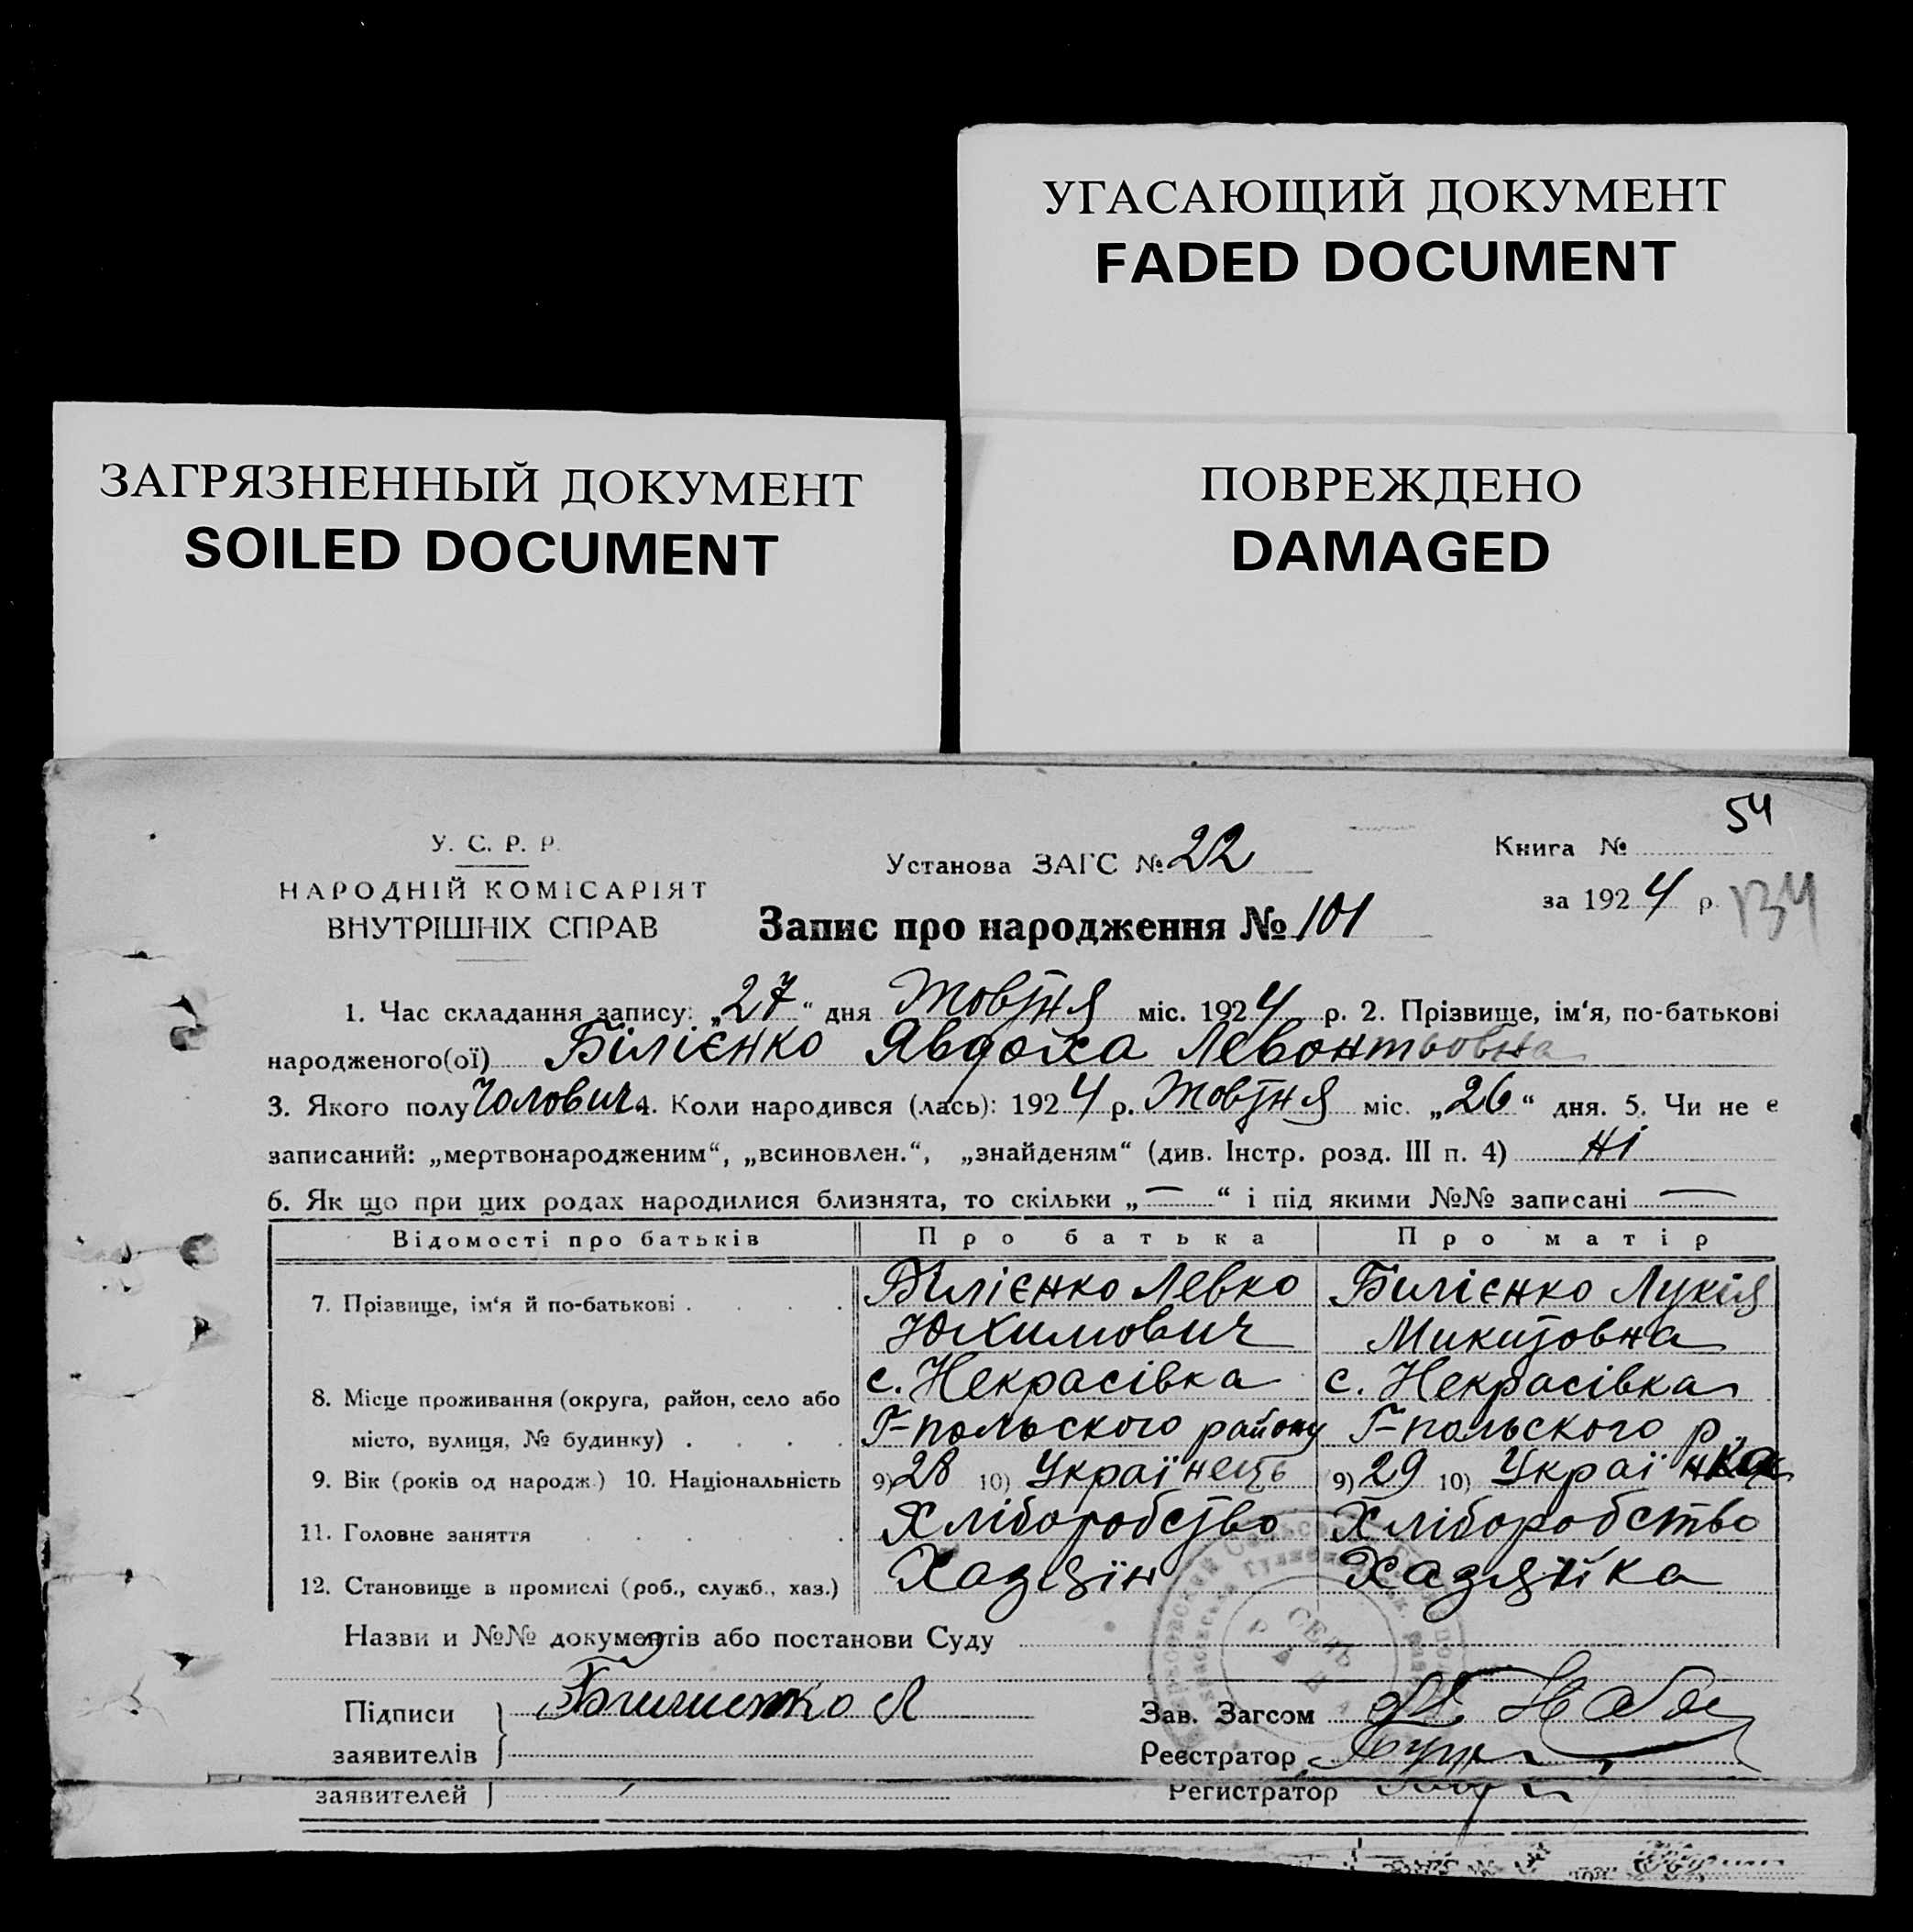 УГАСАЮЩИЙ ДОКУМЕНТ
FADED DOCUMENT
ЗАГРЯЗНЕННЫЙ ДОКУМЕНТ
SOILED DOCUMENT
ПОВРЕЖДЕНО
DAMAGED
54
У. С. Р. Р.
НАРОДНІЙ КОМІСАРІЯТ
ВНУТРІШНІХ СПРАВ
Установа ЗАГС № 22
Запис про народження № 101
Книга №
за 1924 р.
134
1. Час складання запису: „27“ дня Жовтня міс. 1924 р. 2. Прізвище, ім'я, по-батькові
народженого(ої) Білієнко Явдоха Левонтьовна
3. Якого полу Чолович. 4. Коли народився (лась): 1924 р. Жовтня міс. „26“ дня. 5. Чи не є
записаний: „мертвонародженим“, „всиновлен.“, „знайденям“ (див. Інстр. розд. III п. 4) ні
6. Як що при цих родах народилися близнята, то скільки „—“ і під якими №№ записані —
Відомості про батьків Про батька Про матір
7. Прізвище, ім'я й по-батькові Білієнко Левко Билієнко Лукія
Юхимович Микитовна
8. Місце проживання (округа, район, село або с. Некрасівка с. Некрасівка
місто, вулиця, № будинку) Г-польського району Г-польського р.
9. Вік (років од народж.) 10. Національність 9) 28 10) Українець 9) 29 10) Українка
11. Головне заняття Хліборобство Хліборобство
12. Становище в промислі (роб., служб., хаз.) Хазяїн Хазяйка
Назви и №№ документів або постанови Суду
Підписи Билиенко Л Зав. Загсом
заявителів Реєстратор
заявителей Регистратор